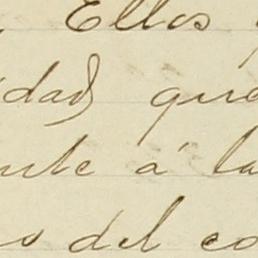 Ellos
dad) que
nte á la
s del co